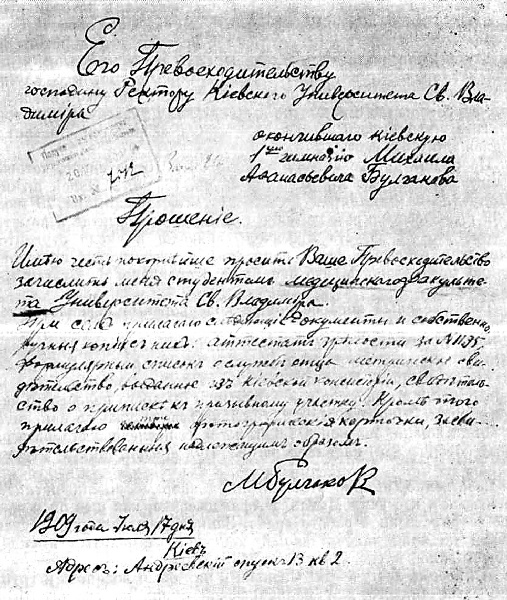 Его Превосходительству
господину Ректору Кіевскаго Университета Св. Вла-
диміра
окончившаго Кіевскую
1ую гимназію Михаила
Аѳанасьевича Булгакова
Прошеніе.
Имѣю честь покорнѣйше просить Ваше Превосходительство
зачислить меня студентомъ Медицинскаго факульте-
та Университета Св. Владиміра.
При семъ прилагаю слѣдующіе документы и собственно-
ручныя копіи съ нихъ: аттестатъ зрѣлости за №
формулярный списокъ о службѣ отца, метрическое сви-
дѣтельство, выданное изъ Кіевской Консисторіи, свидѣтель-
ство о припискѣ къ призывному участку. Кромѣ того
прилагаю три фотографическія карточки, засви-
дѣтельствованныя надлежащимъ образомъ.
МБулгаков
1909 года Іюля 17 дня
Кіевъ
Адресъ: Андреевскій спускъ 13 кв 2.